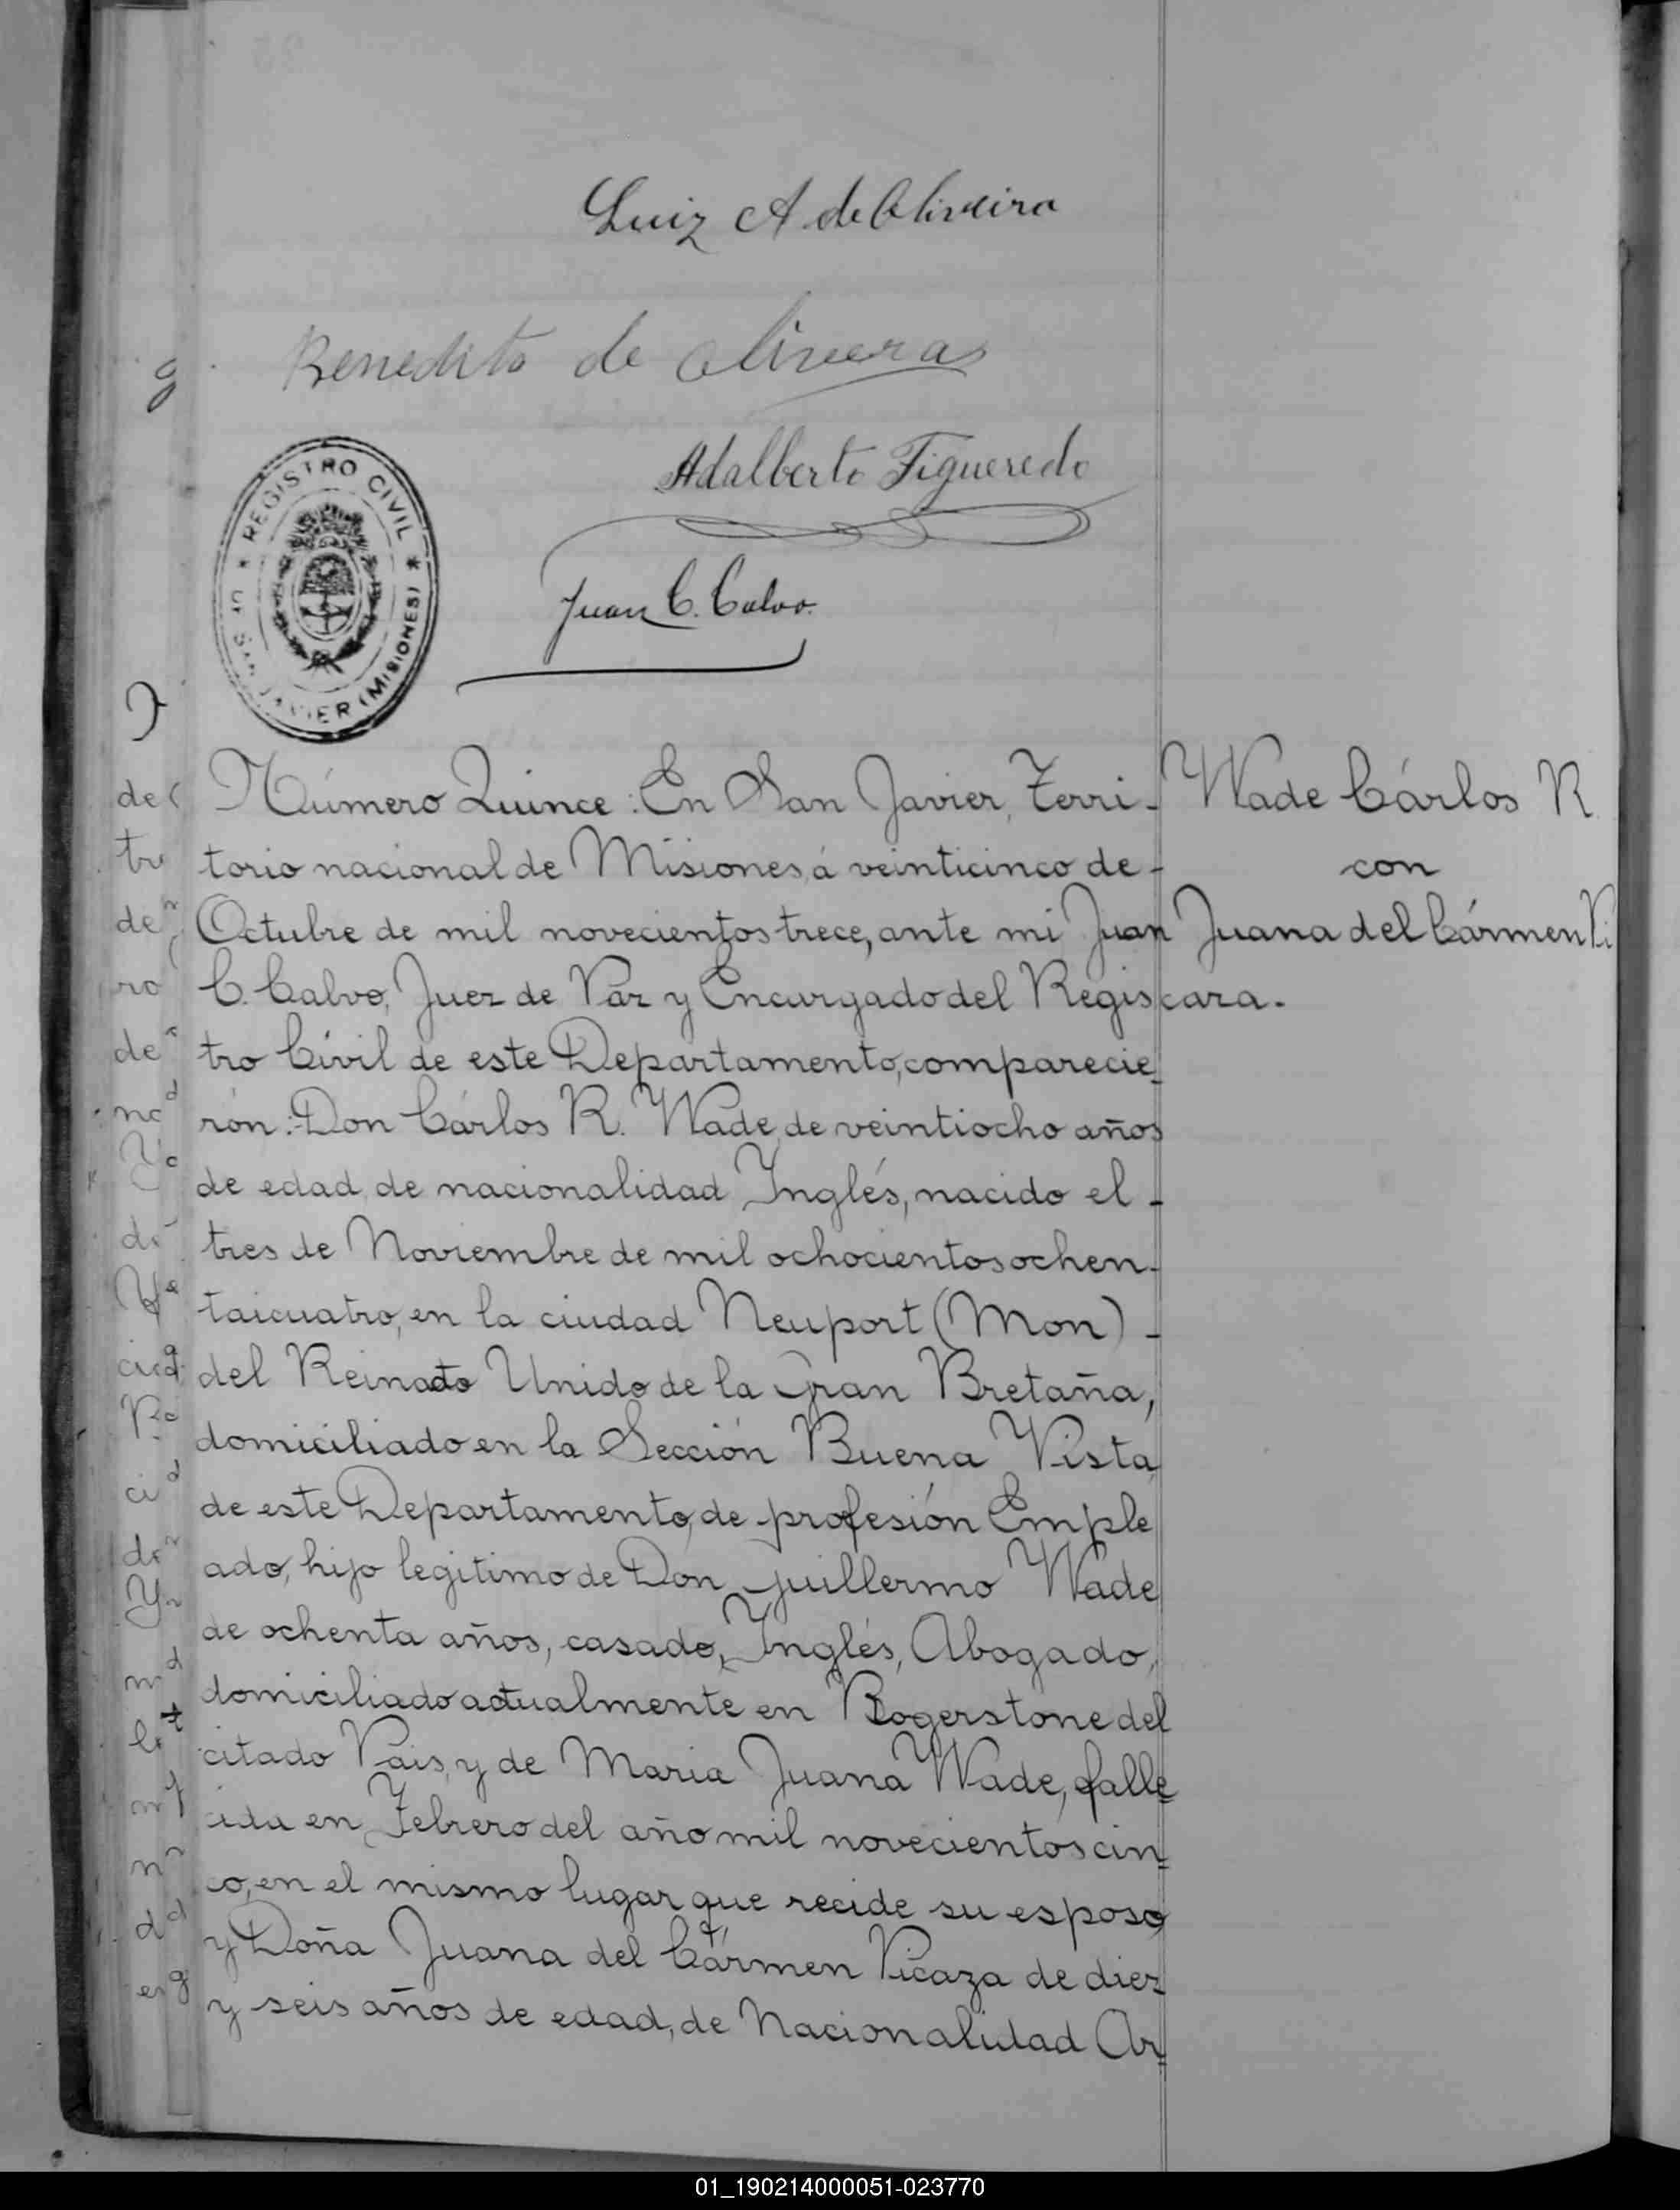 Luiz A. de Oliveira
Benedito de Oliveras
Adalberto Figueredo
* REGISTRO CIVIL *
DE SAN JAVIER (MISIONES)
Juan C. Calvo.
Número Quince: En San Javier, Terri-
torio nacional de Misiones, á veinticinco de-
Octubre de mil novecientos trece, ante mi Juan
C. Calvo, Juez de Paz y Encargado del Regis
tro Civil de este Departamento, comparecie-
rón: Don Cárlos R. Wade, de veintiocho años
de edad, de nacionalidad Ynglés, nacido el -
tres de Noviembre de mil ochocientos ochen-
taicuatro, en la ciudad Neuport (Mon) -
del Reinado Unido de la Gran Bretaña,
domiciliado en la Sección Buena Vista
de este Departamento, de profesión Emple
ado, hijo legitimo de Don Guillermo Wade
de ochenta años, casado, Ynglés, Abogado,
domiciliado actualmente en Rogerstone del
citado Pais, y de Maria Juana Wade, falle
cida en Febrero del año mil novecientos cin=
co, en el mismo lugar que recide su esposo,
y Doña Juana del Cármen Vicaza de diez
y seis años de edad, de Nacionalidad Ar=
Wade Cárlos R.
con
Juana del Cármen Vi
cara.
01_190214000051-023770